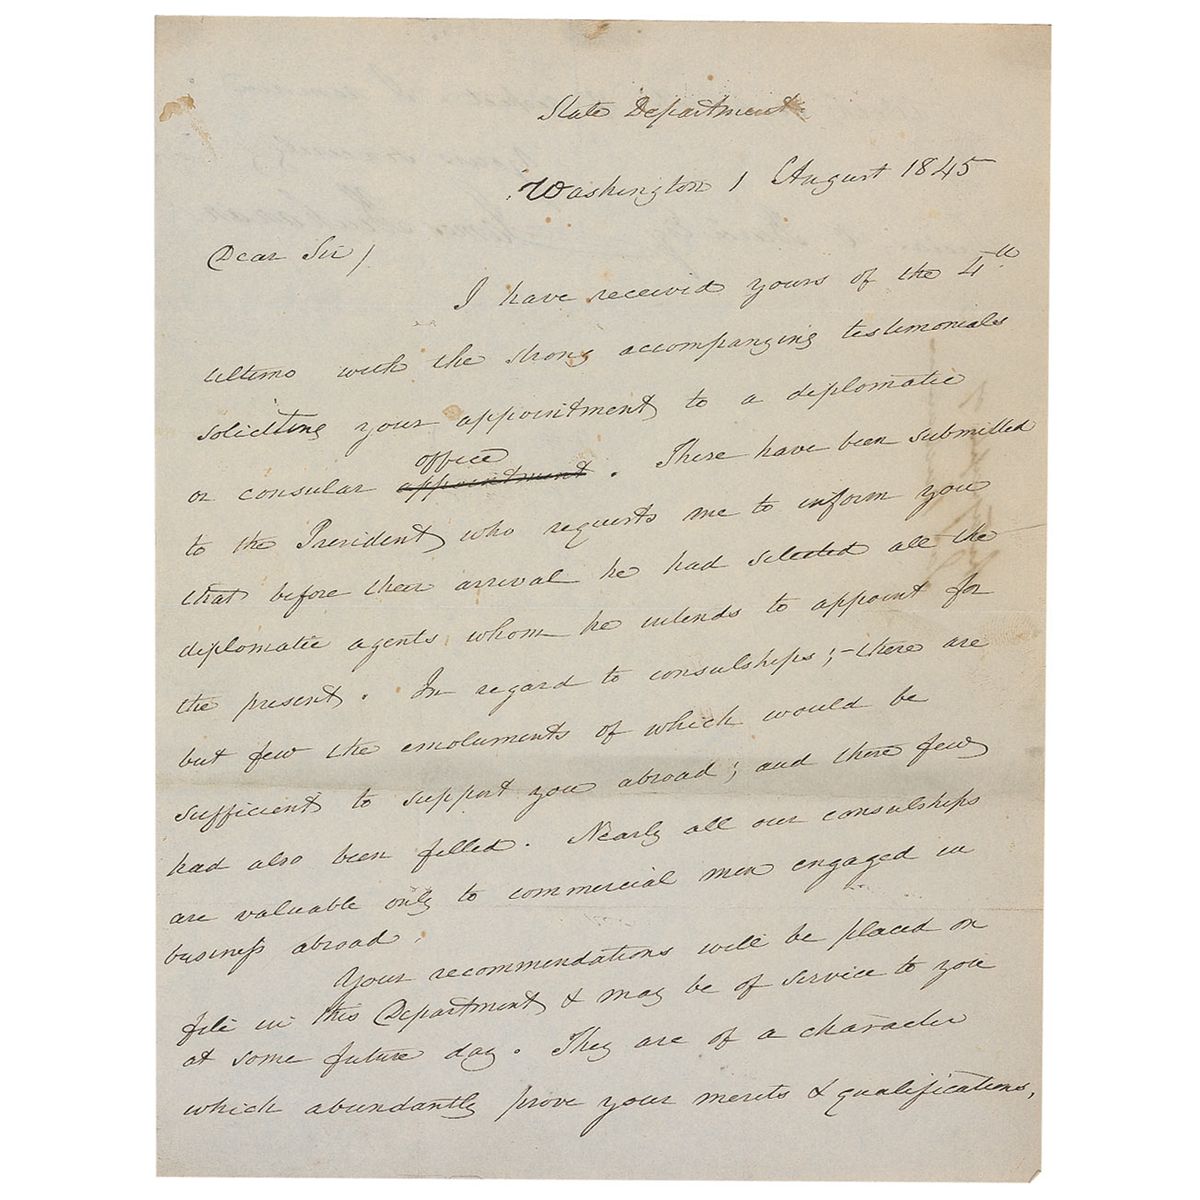 State Department
Washington 1 August 1845
Dear Sir,
I have received yours of the 4th
ultimo with the strong accompanying testimonials
soliciting your appointment to a diplomatic
office
or consular appointment. These have been submitted
to the President, who requests me to inform you
that before their arrival he had selected all the
diplomatic agents whom he intends to appoint for
the present. In regard to consulships;–there are
but few the emoluments of which would be
sufficient to support you abroad; and these few
had also been filled. Nearly all our consulships
are valuable only to commercial men engaged in
business abroad.
Your recommendations will be placed on
file in this Department & may be of service to you
at some future day. They are of a character
which abundantly prove your merits & qualifications,